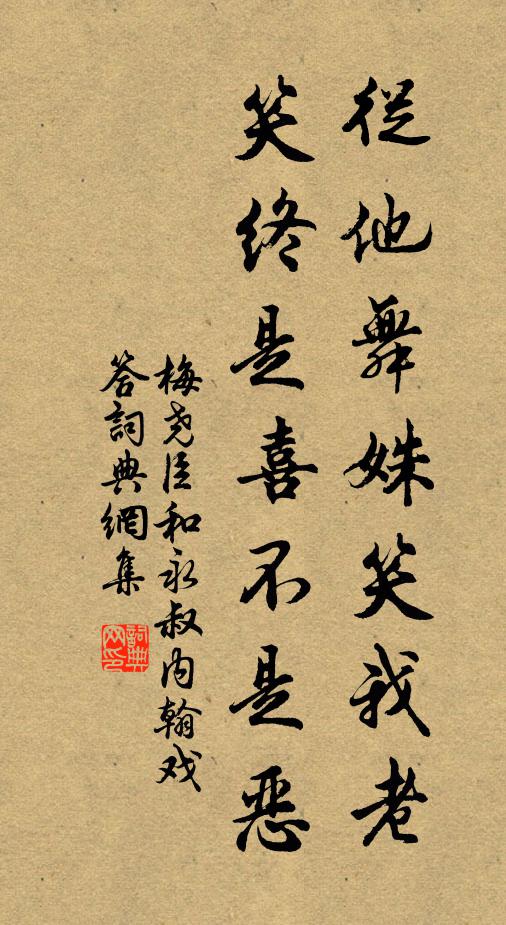 從他舞姝笑我老
笑終是喜不是惡
梅堯臣和永叔内翰戏
答詞典網集
詞典
网印